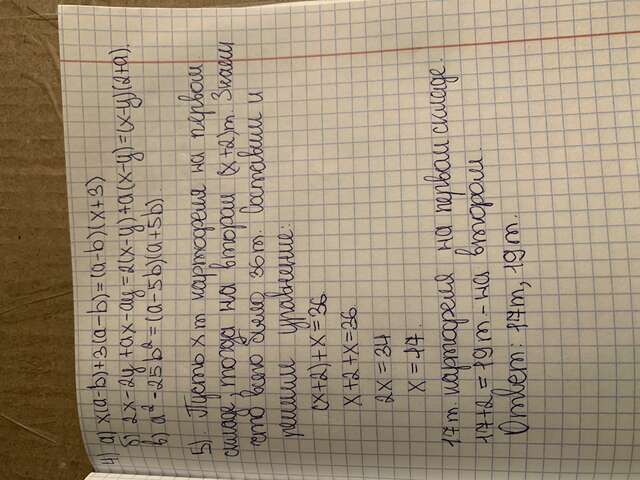 4) а) x(a-b)+3(a-b)=(a-b)(x+3)
б) 2x-2y+ax-ay=2(x-y)+a(x-y)=(x-y)(2+a).
в) a²-25b²=(a-5b)(a+5b).
5). Пусть x т картофеля на первом
складе, тогда на втором (x+2)т. Знаем
что всего было 36т. Составим и
решим уравнение:
(x+2)+x=36
x+2+x=36
2x=34
x=17
17т. картофеля на первом складе.
17+2=19т-на втором.
Ответ: 17т, 19т.